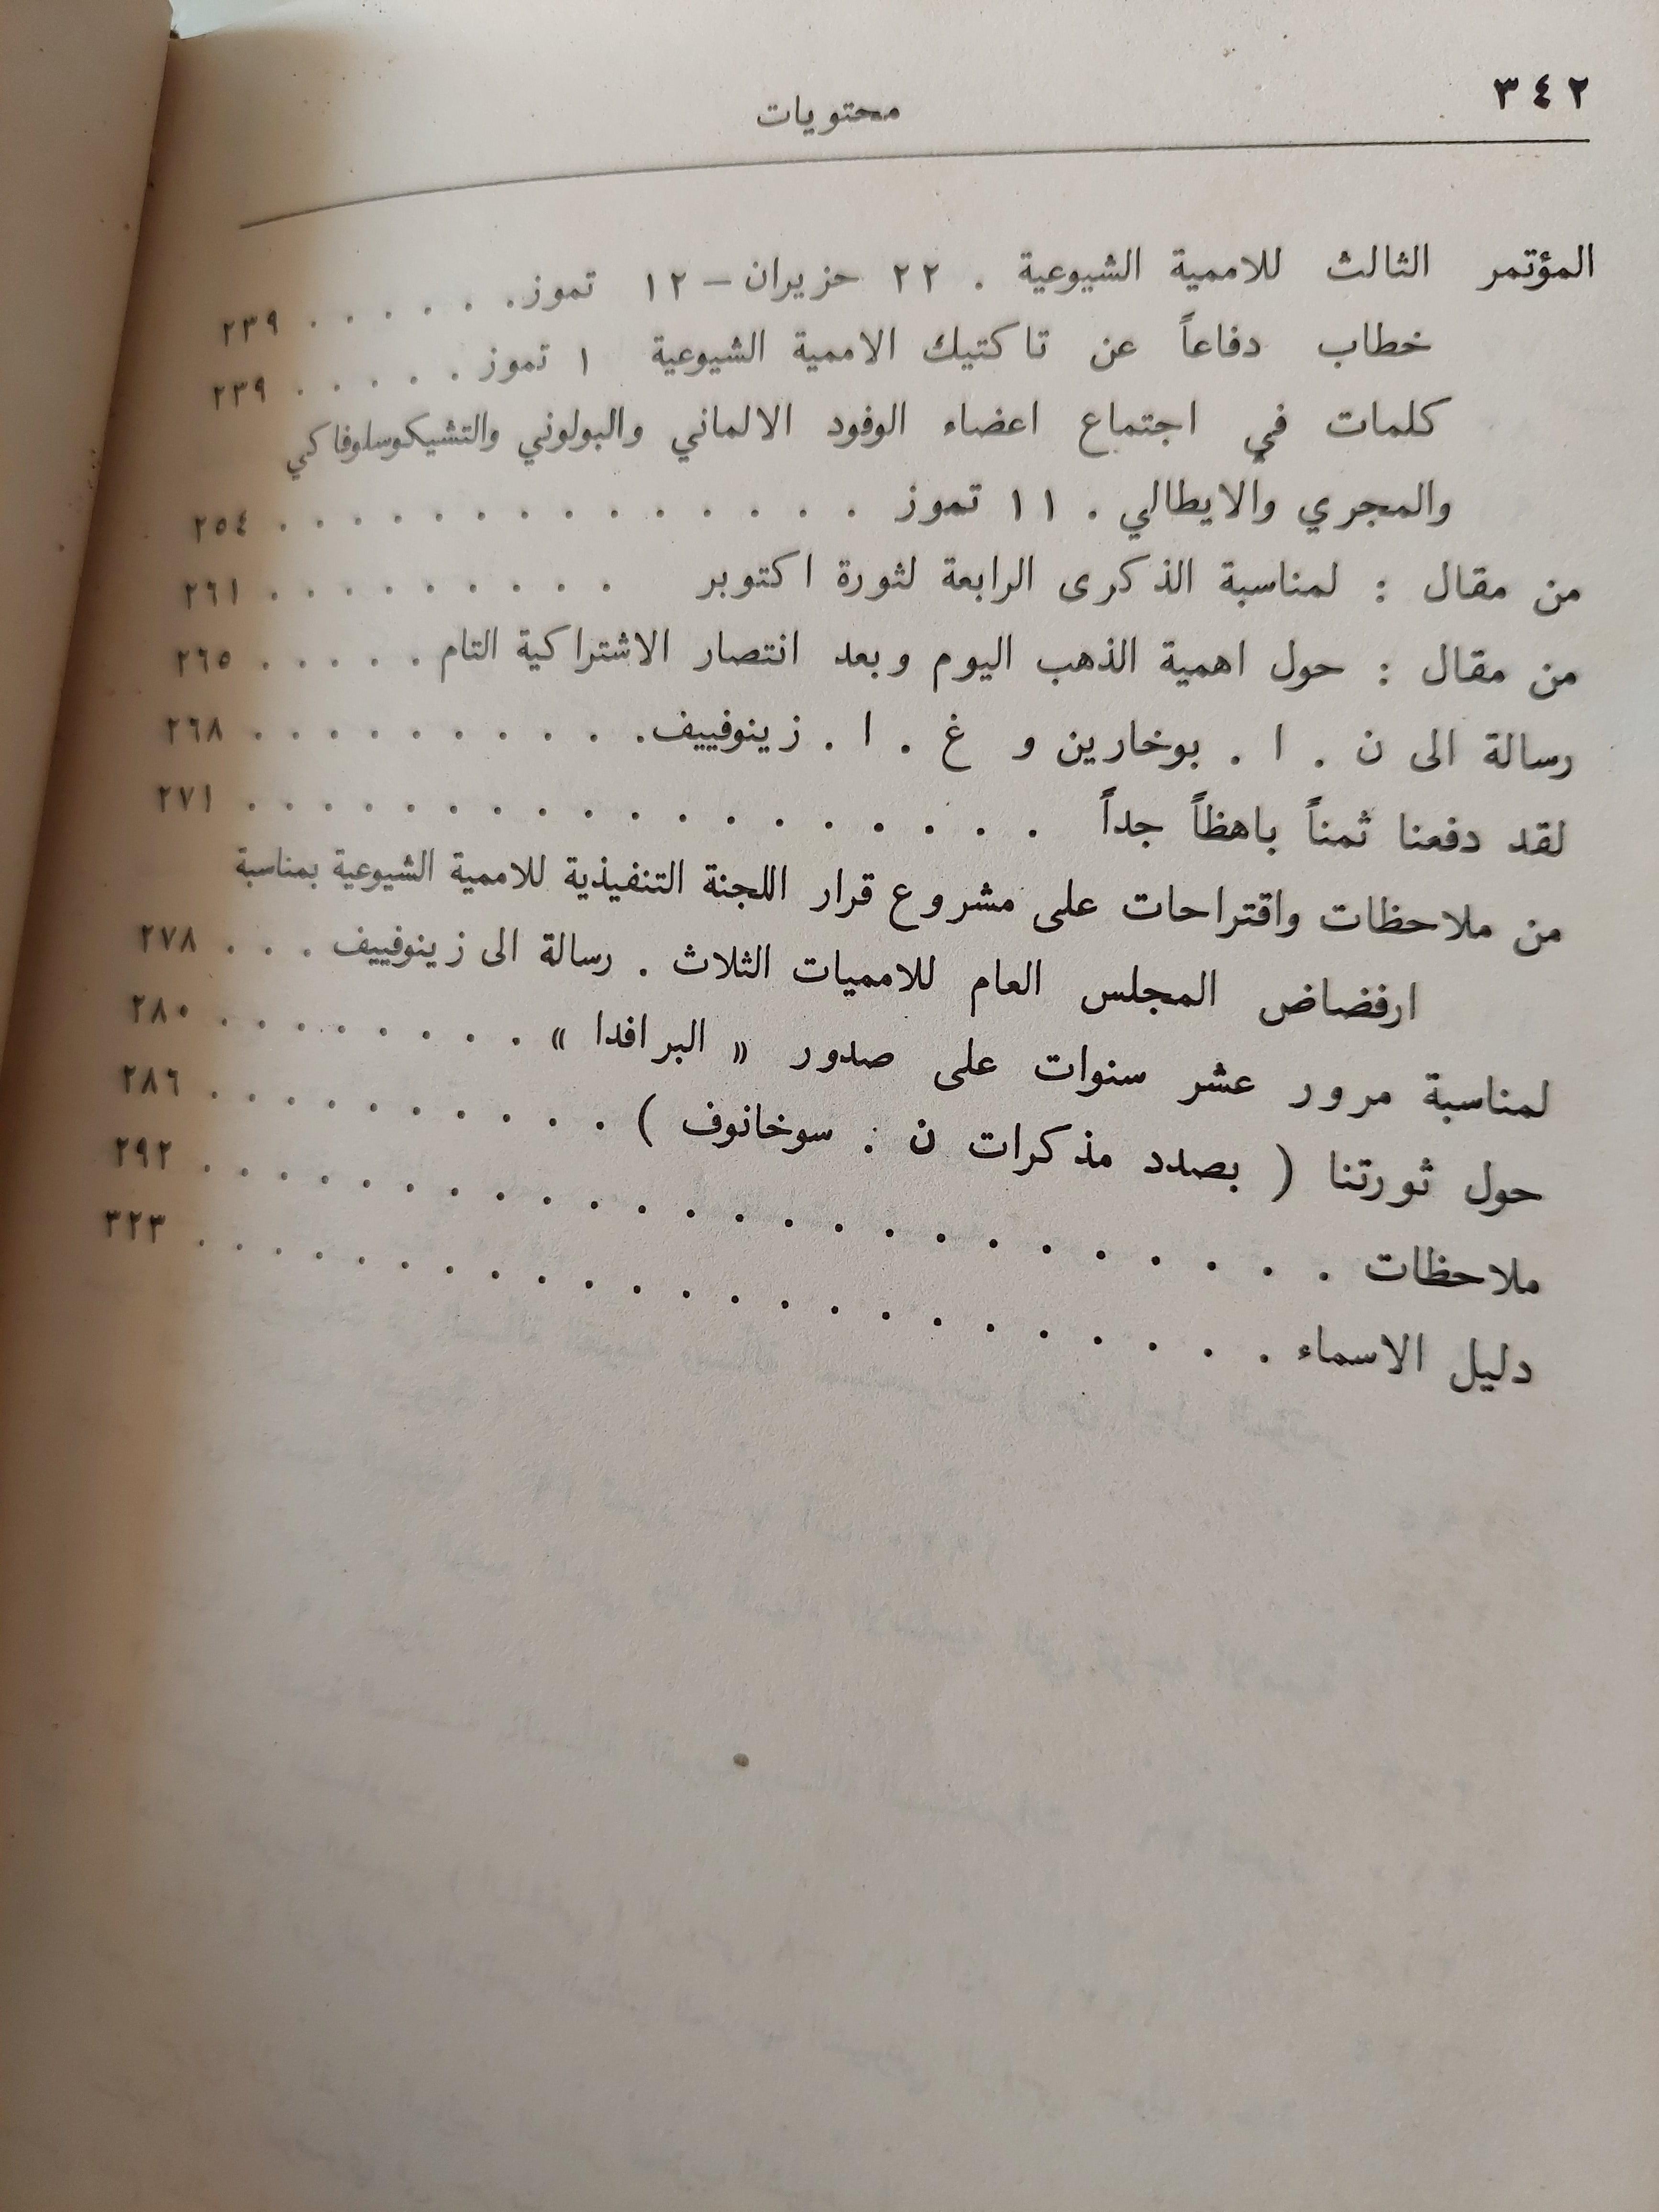 ٣٤٢
محتويات
المؤتمر الثالث للاممية الشيوعية . ٢٢ حزيران – ١٢ تموز . . . . . . ٢٣٩
خطاب دفاعاً عن تاكتيك الاممية الشيوعية ١ تموز . . . . . ٢٣٩
كلمات في اجتماع اعضاء الوفود الالماني والبولوني والتشيكوسلوفاكي
والمجري والايطالي . ١١ تموز . . . . . . . . . . . . . . ٢٥٤
من مقال : لمناسبة الذكرى الرابعة لثورة اكتوبر . . . . . . . . . ٢٦١
من مقال : حول اهمية الذهب اليوم وبعد انتصار الاشتراكية التام . . . . . ٢٦٥
رسالة الى ن . ا . بوخارين و غ . ا . زينوفييف . . . . . . . . . . ٢٦٨
لقد دفعنا ثمناً باهظاً جداً . . . . . . . . . . . . . . . . . . ٢٧١
من ملاحظات واقتراحات على مشروع قرار اللجنة التنفيذية للاممية الشيوعية بمناسبة
ارفضاض المجلس العام للامميات الثلاث . رسالة الى زينوفييف . . . ٢٧٨
لمناسبة مرور عشر سنوات على صدور « البرافدا » . . . . . . . . ٢٨٠
حول ثورتنا ( بصدد مذكرات ن . سوخانوف ) . . . . . . . . . . . ٢٨٦
ملاحظات . . . . . . . . . . . . . . . . . . . . . . . . ٢٩٢
دليل الاسماء . . . . . . . . . . . . . . . . . . . . . . . ٣٢٣